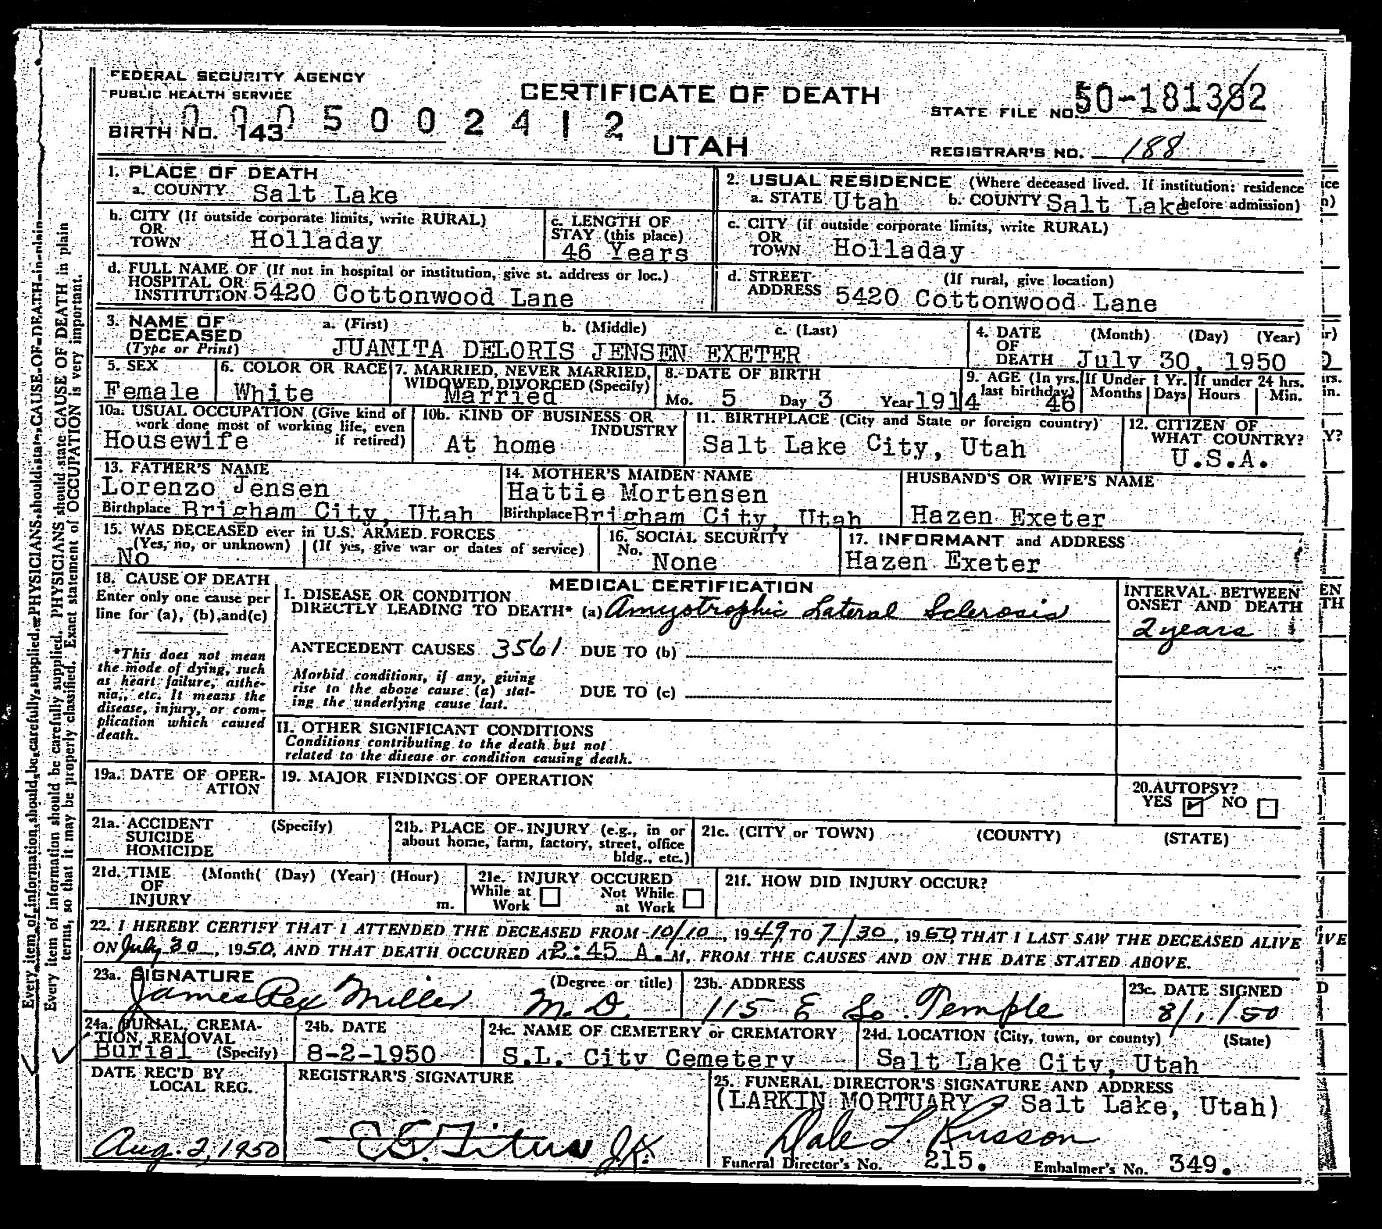 FEDERAL SECURITY AGENCY
PUBLIC HEALTH SERVICE
CERTIFICATE OF DEATH
UTAH
STATE FILE NO. 50-181382
BIRTH NO. 143
0005002412
REGISTRAR'S NO. 188
1. PLACE OF DEATH
a. COUNTY Salt Lake
2. USUAL RESIDENCE (Where deceased lived. If institution: residence before admission)
a. STATE Utah b. COUNTY Salt Lake
b. CITY (If outside corporate limits, write RURAL)
OR
TOWN Holladay
c. LENGTH OF
STAY (this place)
46 Years
c. CITY (if outside corporate limits, write RURAL)
OR
TOWN Holladay
d. FULL NAME OF (If not in hospital or institution, give st. address or loc.)
HOSPITAL OR
INSTITUTION 5420 Cottonwood Lane
d. STREET (If rural, give location)
ADDRESS 5420 Cottonwood Lane
3. NAME OF a. (First) b. (Middle) c. (Last)
DECEASED
(Type or Print) JUANITA DELORIS JENSEN EXETER
4. DATE (Month) (Day) (Year)
OF
DEATH July 30, 1950
5. SEX
Female
6. COLOR OR RACE
White
7. MARRIED, NEVER MARRIED,
WIDOWED, DIVORCED (Specify)
Married
8. DATE OF BIRTH
Mo. 5 Day 3 Year 1914
9. AGE (In yrs.
last birthday)
46
If Under 1 Yr.
Months Days
If under 24 hrs.
Hours Min.
10a. USUAL OCCUPATION (Give kind of
work done most of working life, even
if retired)
Housewife
10b. KIND OF BUSINESS OR
INDUSTRY
At home
11. BIRTHPLACE (City and State or foreign country)
Salt Lake City, Utah
12. CITIZEN OF
WHAT COUNTRY?
U.S.A.
13. FATHER'S NAME
Lorenzo Jensen
Birthplace Brigham City, Utah
14. MOTHER'S MAIDEN NAME
Hattie Mortensen
Birthplace Brigham City, Utah
HUSBAND'S OR WIFE'S NAME
Hazen Exeter
15. WAS DECEASED ever in U.S. ARMED FORCES
(Yes, no, or unknown) (If yes, give war or dates of service)
No
16. SOCIAL SECURITY
No. None
17. INFORMANT and ADDRESS
Hazen Exeter
18. CAUSE OF DEATH
Enter only one cause per
line for (a), (b), and (c)
*This does not mean
the mode of dying, such
as heart failure, asthe-
nia, etc. It means the
disease, injury, or com-
plication which caused
death.
MEDICAL CERTIFICATION
I. DISEASE OR CONDITION
DIRECTLY LEADING TO DEATH* (a) Amyotrophic Lateral Sclerosis
INTERVAL BETWEEN
ONSET AND DEATH
2 years
ANTECEDENT CAUSES 3561 DUE TO (b)
Morbid conditions, if any, giving
rise to the above cause (a) stat-
ing the underlying cause last.
DUE TO (c)
II. OTHER SIGNIFICANT CONDITIONS
Conditions contributing to the death but not
related to the disease or condition causing death.
19a. DATE OF OPER-
ATION
19. MAJOR FINDINGS OF OPERATION
20. AUTOPSY?
YES NO
21a. ACCIDENT (Specify)
SUICIDE
HOMICIDE
21b. PLACE OF INJURY (e.g., in or
about home, farm, factory, street, office
bldg., etc.)
21c. (CITY or TOWN) (COUNTY) (STATE)
21d. TIME (Month( (Day) (Year) (Hour)
OF
INJURY m.
21e. INJURY OCCURED
While at Work Not While at Work
21f. HOW DID INJURY OCCUR?
22. I HEREBY CERTIFY THAT I ATTENDED THE DECEASED FROM 10/10, 1949 TO 7/30, 1950, THAT I LAST SAW THE DECEASED ALIVE
ON July 30, 1950, AND THAT DEATH OCCURED AT 2:45 A.M. FROM THE CAUSES AND ON THE DATE STATED ABOVE.
23a. SIGNATURE (Degree or title)
James Rex Miller M.D.
23b. ADDRESS
115 E So. Temple
23c. DATE SIGNED
8/1/50
24a. BURIAL, CREMA-
TION, REMOVAL
Burial (Specify)
24b. DATE
8-2-1950
24c. NAME OF CEMETERY or CREMATORY
S.L. City Cemetery
24d. LOCATION (City, town, or county) (State)
Salt Lake City, Utah
DATE REC'D BY
LOCAL REG.
Aug. 2, 1950
REGISTRAR'S SIGNATURE
25. FUNERAL DIRECTOR'S SIGNATURE AND ADDRESS
(LARKIN MORTUARY Salt Lake, Utah)
Dale L Russon
Funeral Director's No. 215. Embalmer's No. 349.
Every item of information should be carefully supplied. PHYSICIANS should state CAUSE OF DEATH in plain
Every item of information should be carefully supplied. PHYSICIANS should state CAUSE OF DEATH in plain
terms, so that it may be properly classified. Exact statement of OCCUPATION is very important.